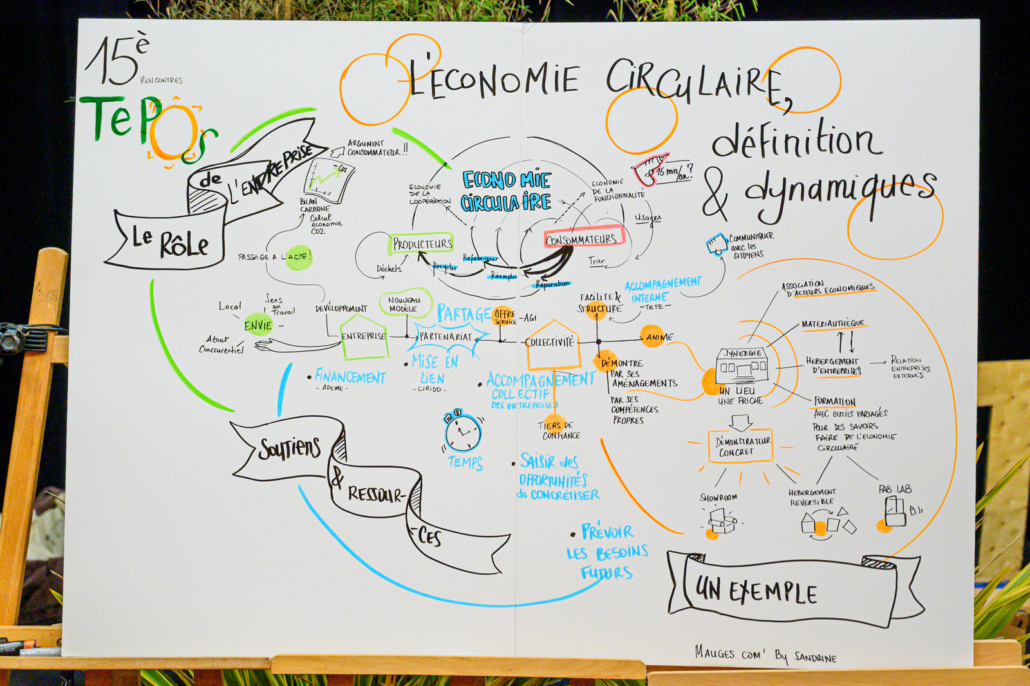 15è
RENCONTRES
TEPOS
L'ECONOMIE CIRCULAIRE,
définition
& dynamiques
Le RÔLE
de
L'ENTREPRISE
ARGUMENT
CONSOMMATEUR !!
BILAN
CARBONE
Calcul
economie
CO2
PASSAGE A L'ACTE!
ECONOMIE
DE LA
COOPERATION
ECONOMIE
CIRCULAIRE
ECONOMIE
DE LA
FONCTIONNALITÉ
15 min/
an. ?
Usages
PRODUCTEURS
CONSOMMATEURS
Déchets
Recycler
Refabriquer
Réemploi
Réparation
Trier
COMMUNIQUER
AVEC LES
CITOYENS
Local
Sens
au
Travail
ENVIE
Atout
Concurrentiel
DÉVELOPPEMENT
ENTREPRISE
NOUVEAU
MODÈLE
PARTAGE
PARTENARIAT
OFFRE
SERVICE
-AGI
COLLECTIVITÉ
FACILITE &
STRUCTURE
ACCOMPAGNEMENT
INTERNE
-TETE-
ANIME
DÉMONTRE
PAR SES
AMÉNAGEMENTS
PAR SES
COMPÉTENCES
PROPRES
• FINANCEMENT
- ADEME -
• MISE EN
LIEN
- CIRIDD -
• ACCOMPAGNEMENT
COLLECTIF
DES ENTREPRISES
TIERS DE
CONFIANCE
TEMPS
• SAISIR des
OPPORTUNITÉS
de CONCRÉTISER
• PRÉVOIR
LES BESOINS
FUTURS
SOUTIENS
& RESSOUR-
-CES
ASSOCIATION
D'ACTEURS ECONOMIQUES
MATERIAUTHÈQUE
HEBERGEMENT
D'ENTREPRISES
RELATION
ENTREPRISES
EXTERNES
SYNERGIE
UN LIEU
UNE FRICHE
FORMATION
AVEC OUTILS PARTAGÉS
POUR DES SAVOIRS
FAIRE DE L'ECONOMIE
CIRCULAIRE
DÉMONSTRATEUR
CONCRET
SHOWROOM
HEBERGEMENT
REVERSIBLE
FAB LAB
UN EXEMPLE
MAUGES COM' By SANDRINE